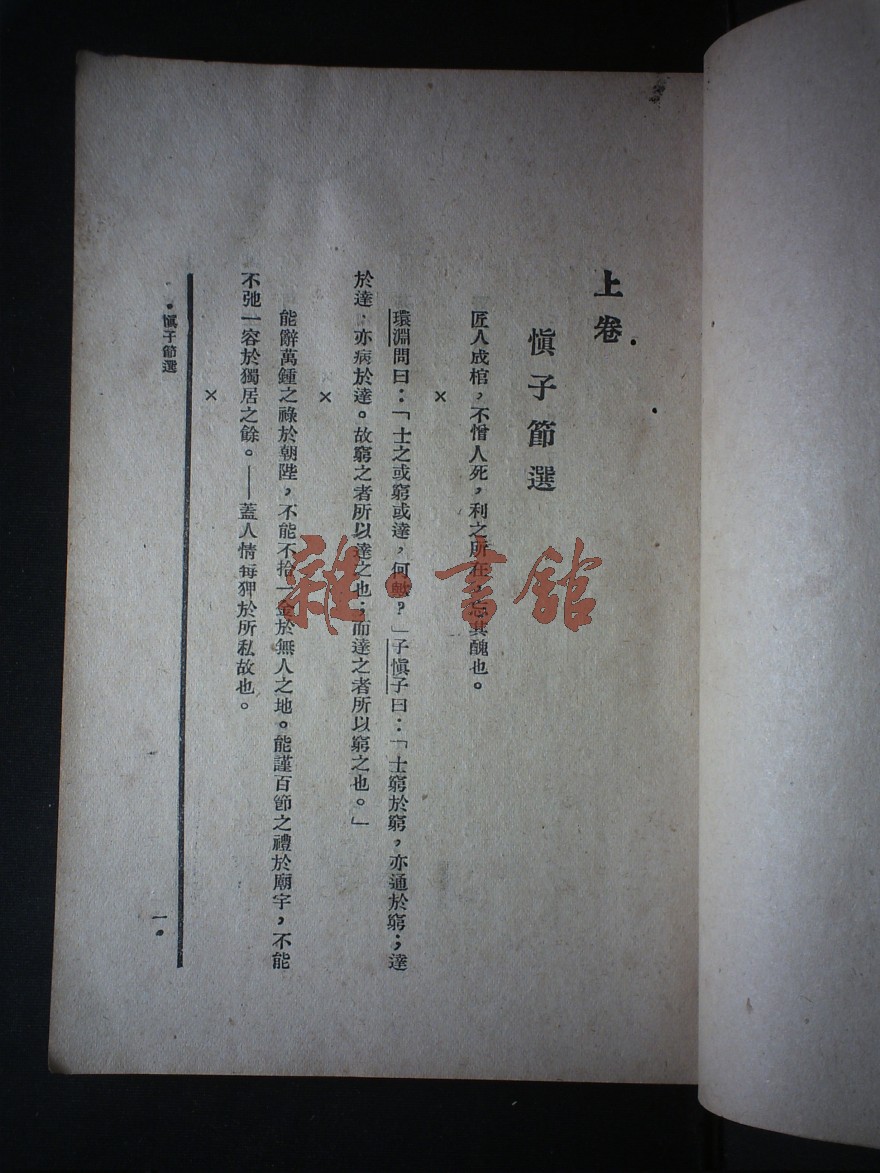 上卷
愼子節選
匠人成棺，不憎人死，利之所在，忘其醜也。
×
環淵問曰：「士之或窮或達，何歟？」子愼子曰：「士窮於窮，亦通於窮；達
於達，亦病於達。故窮之者所以達之也；而達之者所以窮之也。」
×
能辭萬鍾之祿於朝陛，不能不拾一金於無人之地。能謹百節之禮於廟宇，不能
不弛一容於獨居之餘。——蓋人情每狎於所私故也。
×
愼子節選
一
雜·書館